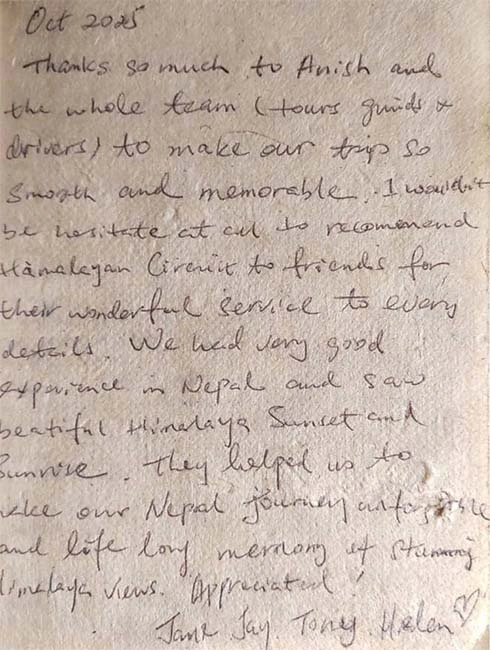 Oct 2025
Thanks so much to Anish and
the whole team (tours guids &
drivers) to make our trip so
smooth and memorable. I wouldn't
be hesitate at all to recomend
Himalayan Circuit to friends for
their wonderful service to every
details. We had very good
experience in Nepal and saw
beatiful Himalaya Sunset and
Sunrise. They helped us to
make our Nepal journey unforgettable
and life long memory of stunning
Himalaya views. Appreciated!
Jane Jay Toney Helen ♡